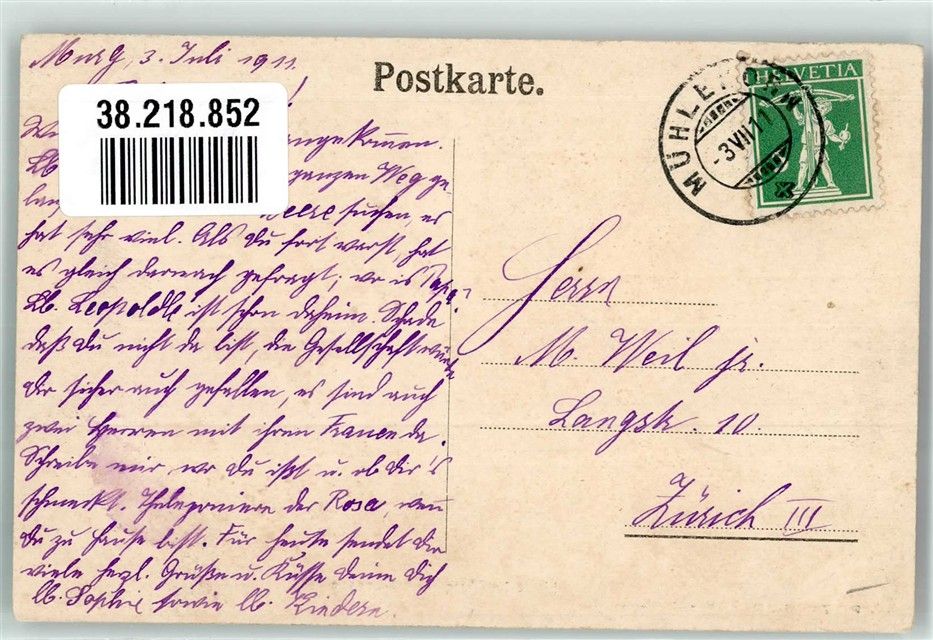 Murg, 3. Juli 1911
Postkarte.
38.218.852
HELVETIA
MÜHLEHORN
-3.VII.11
angekommen.
Lb. ganzen Weg ge-
Beere suchen, es
hat sehr viel. Als du fort warst, hat
es gleich darnach gefragt; wo is Papa?
Lb. Leopoldle ist schon daheim. Schade
daß du nicht da bist, die Gesellschaft würde
dir sicher auch gefallen, es sind auch
zwei Herren mit ihren Frauen da.
Schreibe mir, wo du ißt u. ob dir's
schmeckt. Thelephoniere der Rosa, wenn
du zu Hause bist. Für heute sendet dir
viele herzl. Grüße u. Küsse deine dich
lb. Sophie sowie lb. Kindern.
Herrn
M. Weil jr.
Langstr. 10.
Zürich III